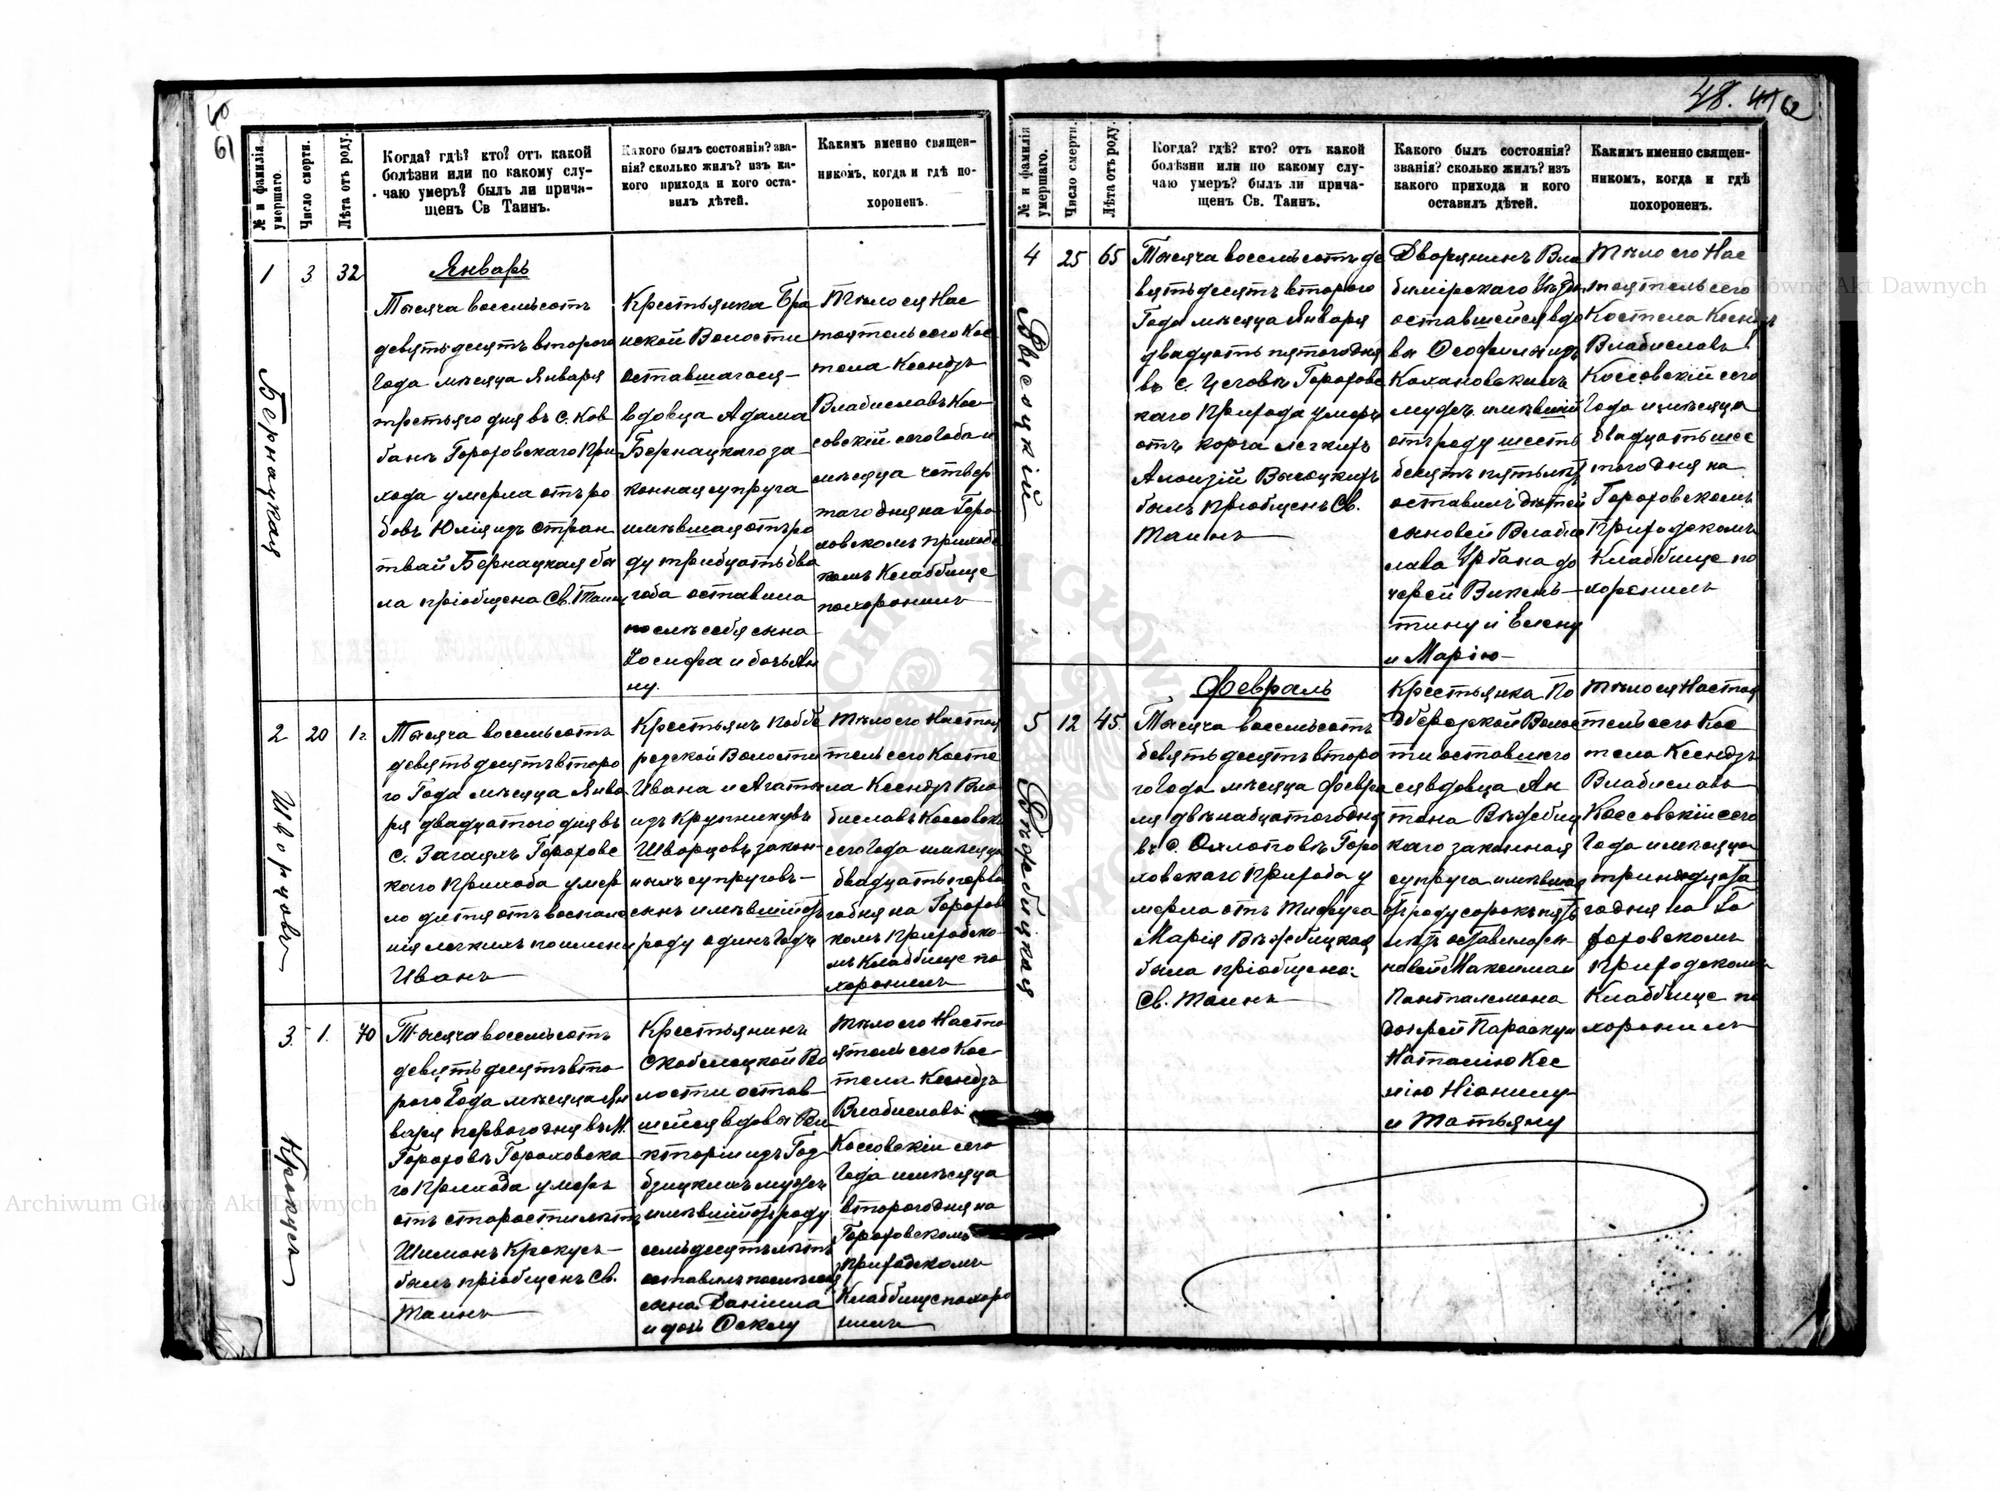 61
№ и фамилія умершаго.
Число смерти.
Лѣта отъ роду.
Когда? гдѣ? кто? отъ какой
болѣзни или по какому слу-
чаю умеръ? былъ ли прича-
щенъ Св Таинъ.
Какого былъ состоянія? зва-
нія? сколько жилъ? изъ ка-
кого прихода и кого оста-
вилъ дѣтей.
Каким­ъ именно священ-
никомъ, когда и гдѣ по-
хороненъ.
1
3
32
Бернацкая
Январь
Тысяча восемьсотъ
девятьдесятъ второго
Года мѣсяца Января
третьяго дня въ с. Ков
банѣ Гороховскаго При
хода умерла отъ ро
довъ Юлія изъ
Бернацкая бы
ла пріобщена Св. Таинъ
Крестьянка
нской Волости
оставшагося
вдовца Адама
Бернацкаго за-
конная супруга
имѣвшая отъ ро
ду тридцать два
года оставила
послѣ себя сына
Іосифа и дочь Ан
ну.
Тѣло ея Нас
тоятель сего Кос
тела Ксендзъ
Владиславъ Кос
совскій сего Года и
мѣсяца четвер
таго дня на Горо
ховскомъ приходс
комъ Кладбище
похоронилъ
2
20
1 г.
Шворцовъ
Тысяча восемьсотъ
девятьдесятъ второ
го Года мѣсяца Янва
ря двадцатого дня въ
с. Загаяхъ Гороховс
каго Прихода умер
ло дитя отъ воспале
нія легкихъ по имени
Иванъ
Крестьянъ Подбе
резской Волости
Ивана и Агаты
изъ Крупниковъ
Шворцовъ закон-
ныхъ супруговъ
сынъ имѣвшій отъ
роду одинъ Годъ
Тѣло его Настоя
тель сего Косте
ла Ксендзъ Вла
диславъ Коссовскій
сего Года и мѣсяца
двадцать перва
го дня на Горохов
комъ Приходско-
мъ Кладбище по
хоронилъ
3.
1.
70
Крокусъ
Тысяча восемьсотъ
девятьдесятъ вто
рого Года мѣсяца Ян
варя первого дня въ М.
Гороховѣ Гороховска
го Прихода умеръ
отъ старости лѣтъ
Шимонъ Крокусъ
былъ пріобщенъ Св.
Таинъ
Крестьянинъ
Скобелецкой Во
лости остав-
шейся вдовы Ви
кторіи изъ
мужъ
имѣвшій отъ роду
семьдесятъ лѣтъ
оставилъ послѣ себя
сына Даніила
и дочь
Тѣло его Насто
ятель сего Кос-
тела Ксендзъ
Владиславъ
Коссовскій сего
Года и мѣсяца
второго дня на
Гороховскомъ
приходскомъ
Кладбище похоро
нилъ
48.
№ и фамилія умершаго.
Число смерти.
Лѣта отъ роду.
Когда? гдѣ? кто? отъ какой
болѣзни или по какому слу-
чаю умеръ? былъ ли прича-
щенъ Св. Таинъ.
Какого былъ состоянія?
званія? сколько жилъ? изъ
какого прихода и кого
оставилъ дѣтей.
Какимъ именно священ-
никомъ, когда и гдѣ
похороненъ.
4
25
65
Высоцкій
Тысяча восемьсотъ де
вятьдесятъ второго
Года мѣсяца Января
двадцать пятого дня
въ с. Цеговѣ Гороховс
каго Прихода умеръ
отъ легкихъ
Алоизій Высоцкій
былъ пріобщенъ Св.
Таинъ
Дворянинъ Вла
димірскаго Уѣзда
оставшейся вдо
вы Ософиліи изъ
Кохановскихъ
мужъ имѣвшій
отъ роду шесть
десятъ пять лѣтъ
оставилъ дѣтей
сыновей Владис
лава Урбана до
черей Викен
тину и Елену
и Марію
Тѣло его Нас
тоятель сего
Костела Ксендзъ
Владиславъ
Коссовскій сего
Года и мѣсяца
двадцать шес
того дня на
Гороховскомъ
Приходскомъ
Кладбище по
хоронилъ
5
12
45
Вѣжбицкая
Февраль
Тысяча восемьсотъ
девятьдесятъ второ
го Года мѣсяца Февра
ля двѣнадцатого дня
въ с. Охлоповѣ Горо
ховскаго Прихода у
мерла отъ Тифуса
Марія Вѣжбицкая
была пріобщена
Св. Таинъ
Крестьянка По
дберезской Волос
ти оставшего
ся вдовца Ан
тона Вѣжбиц
каго законная
супруга имѣвшая
отъ роду сорокъ пять
лѣтъ оставила сы-
новей Максима и
Панталемона
дочерей Параску и
Наталію Ксе
нію Ніонилу
и Татьяну
Тѣло ея Настоя
тель сего Кос
тела Ксендзъ
Владиславъ
Коссовскій сего
Года и мѣсяца
тринадцата
го дня на Го
роховскомъ
Приходскомъ
Кладбище по
хоронилъ
Archiwum Główne Akt Dawnych